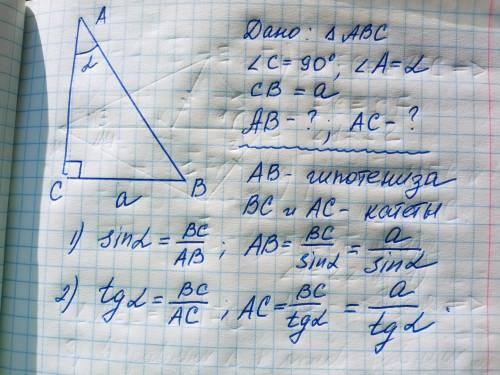 A
α
C
a
B
Дано: △ABC
∠C = 90°; ∠A = α
CB = a
AB - ?; AC - ?
AB - гипотениза
BC и AC - катеты
1) sinα = BC/AB; AB = BC/sinα = a/sinα
2) tgα = BC/AC; AC = BC/tgα = a/tgα.